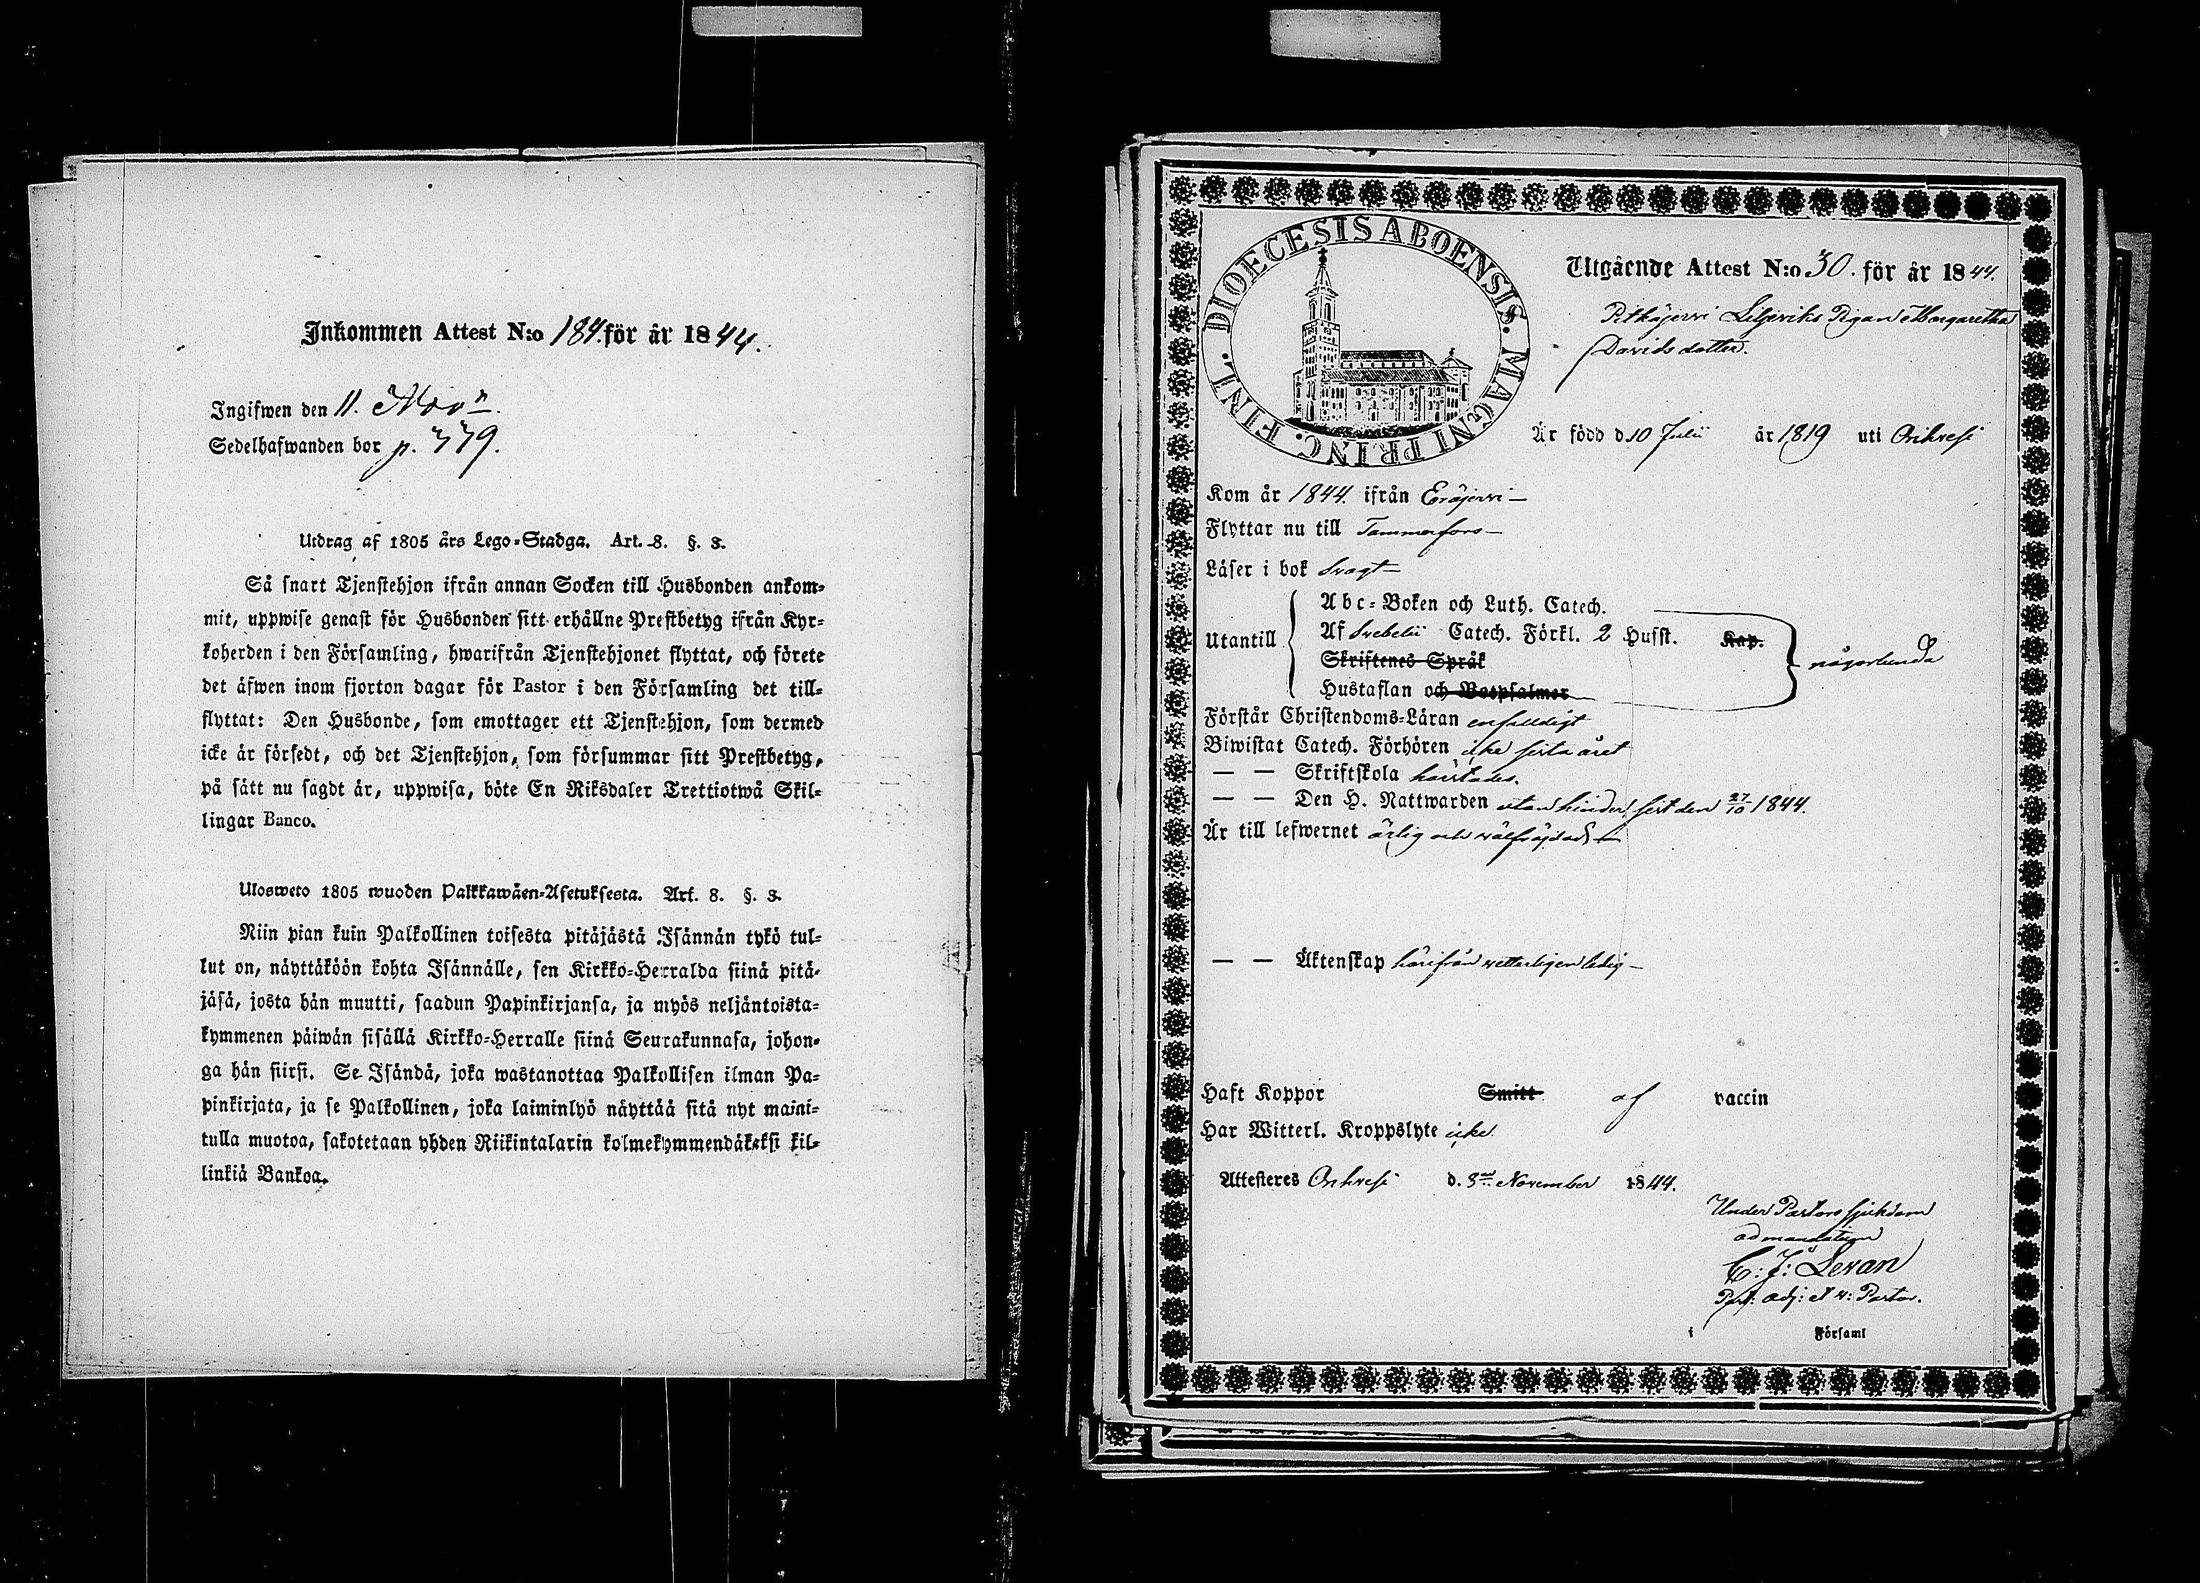 Inkommen Attest N:o 184. för år 1844.
Ingifwen den 11. Novr.
Sedelhafwanden bor p. 779.
Utdrag af 1805 års Lego-Stadga. Art. 8. §. 3.
Så snart Tjenstehjon ifrån annan Socken till Husbonden ankom-
mit, uppwise genast för Husbonden sitt erhållne Prestbetyg ifrån Kyr-
koherden i den Församling, hwarifrån Tjenstehjonet flyttat, och förete
det äfwen inom fjorton dagar för Pastor i den Församling det till-
flyttat: Den Husbonde, som emottager ett Tjenstehjon, som dermed
icke är försedt, och det Tjenstehjon, som försummar sitt Prestbetyg,
på sätt nu sagdt är, uppwisa, böte En Riksdaler Trettiotwå Skil-
lingar Banco.
Ulosweto 1805 wuoden Palkkawäen-Asetuksesta. Art. 8. §. 3.
Niin pian kuin Palkollinen toisesta pitäjästä Isännän tykö tul-
lut on, näyttäköön kohta Isännälle, sen Kirkko-Herralda siinä pitä-
jäsä, josta hän muutti, saadun Papinkirjansa, ja myös neljäntoista-
kymmenen päiwän sisällä Kirkko-Herralle siinä Seurakunnasa, johon-
ga hän siirsi. Se Isändä, joka wastanottaa Palkollisen ilman Pa-
pinkirjata, ja se Palkollinen, joka laiminlyö näyttää sitä nyt maini-
tulla muotoa, sakotetaan yhden Riikintalarin kolmekymmendäkaksi kil-
linkiä Bankoa.
DIOECESIS ABOENSIS. MAGNI PRINC. FINL.
Utgående Attest N:o 30. för år 1844.
Pitkäjerwi Liljeriks Pigan Margaretha
Davidsdotter.
Är född d 10 Julii år 1819 uti Orihvesi
Kom år 1844. ifrån Eräjerwi
Flyttar nu till Tammerfors
Läser i bok svagt
Utantill
Abc-Boken och Luth. Catech.
Af Svebelii Catech. Förkl. 2 Husst. Kap.
Skriftenes Språk
Hustaflan och Botpsalmer
någorlunda
Förstår Christendoms-Läran enfaldigt
Biwistat Catech. Förhören icke sista året
— — Skriftskola härstädes.
— — Den H. Nattwarden utan hinder, sist den 27/10 1844.
Är till lefwernet ärlig och välfräjdad
— — Äktenskap härifrån vetterligen ledig
Haft Koppor Smitt af vaccin
Har Witterl. Kroppslyte icke
Attesteres Orihvesi d. 3 November 1844.
Under Pastors sjukdom
ad mandatum
C: J: Levan
Past: adj: et v: Pastor.
i Församl